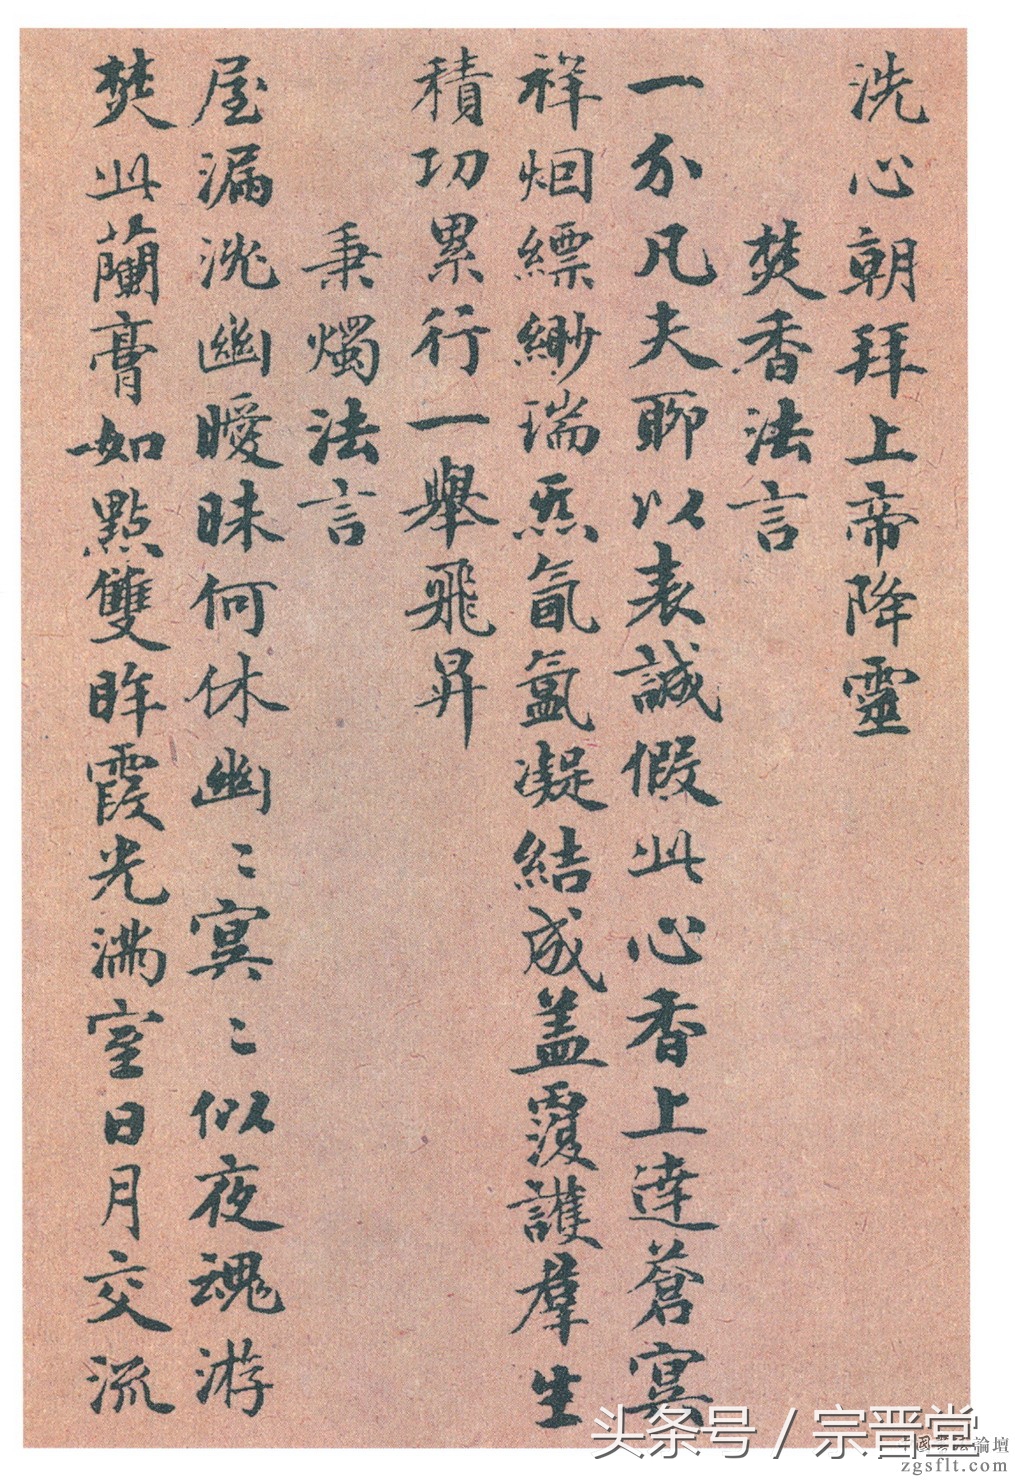 洗心朝拜上帝降靈
焚香法言
一介凡夫聊以表誠假此心香上達蒼冥
祥烟縹緲瑞炁氤氳凝結成盖覆護羣生
積功累行一舉飛昇
秉燭法言
屋漏幽曖昧何休幽〻冥〻似夜魂游
焚此蘭膏如點雙眸霞光滿室日月交流
头条号 / 宗晋堂
國書法論壇
zgsflt.com